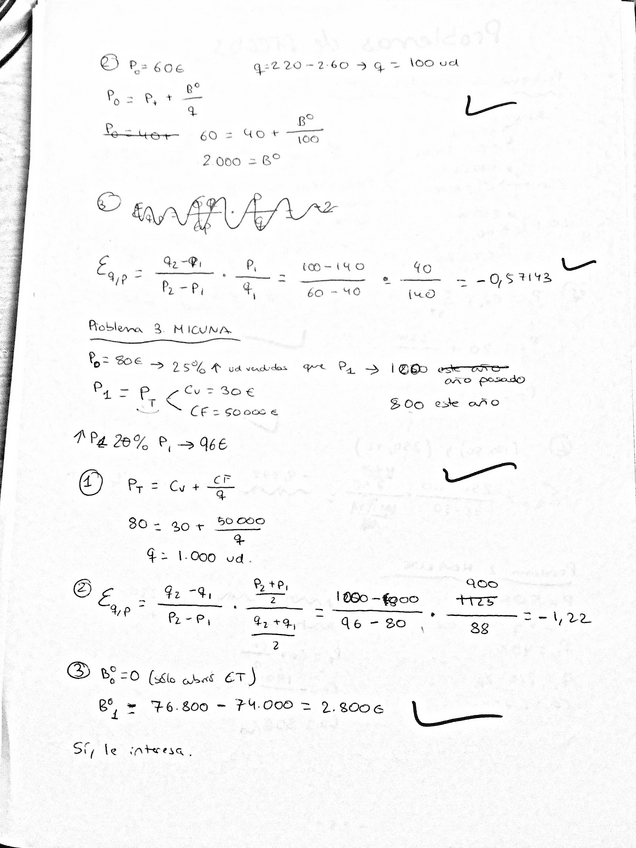 ② P₀ = 60€ q = 220 – 2·60 → q = 100 ud
P₀ = P₊ + Bº/q
P₀ = 40+ 60 = 40 + Bº/100
2000 = Bº
③
Ɛq/p = (q₂ – q₁)/(P₂ – P₁) · P₁/q₁ = (100 – 140)/(60 – 40) · 40/140 = –0,57143
Problema 3. MICUNA
P₀ = 80€ → 25% ↑ ud vendidas que P₁ → 1000 este año
año pasado
P₁ = P_T < Cv = 30€
CF = 50000€
800 este año
↑P 20% P₁ → 96€
① P_T = Cv + CF/q
80 = 30 + 50000/q
q = 1.000 ud.
② Ɛq/p = (q₂ – q₁)/(P₂ – P₁) · ((P₂ + P₁)/2)/((q₂ + q₁)/2) = /(96 – 80) · 900 1125/88 = –1,22
③ B₀º = 0 (sólo cubrís CT)
B₁º = 76.800 – 74.000 = 2.800€
Sí, le interesa.